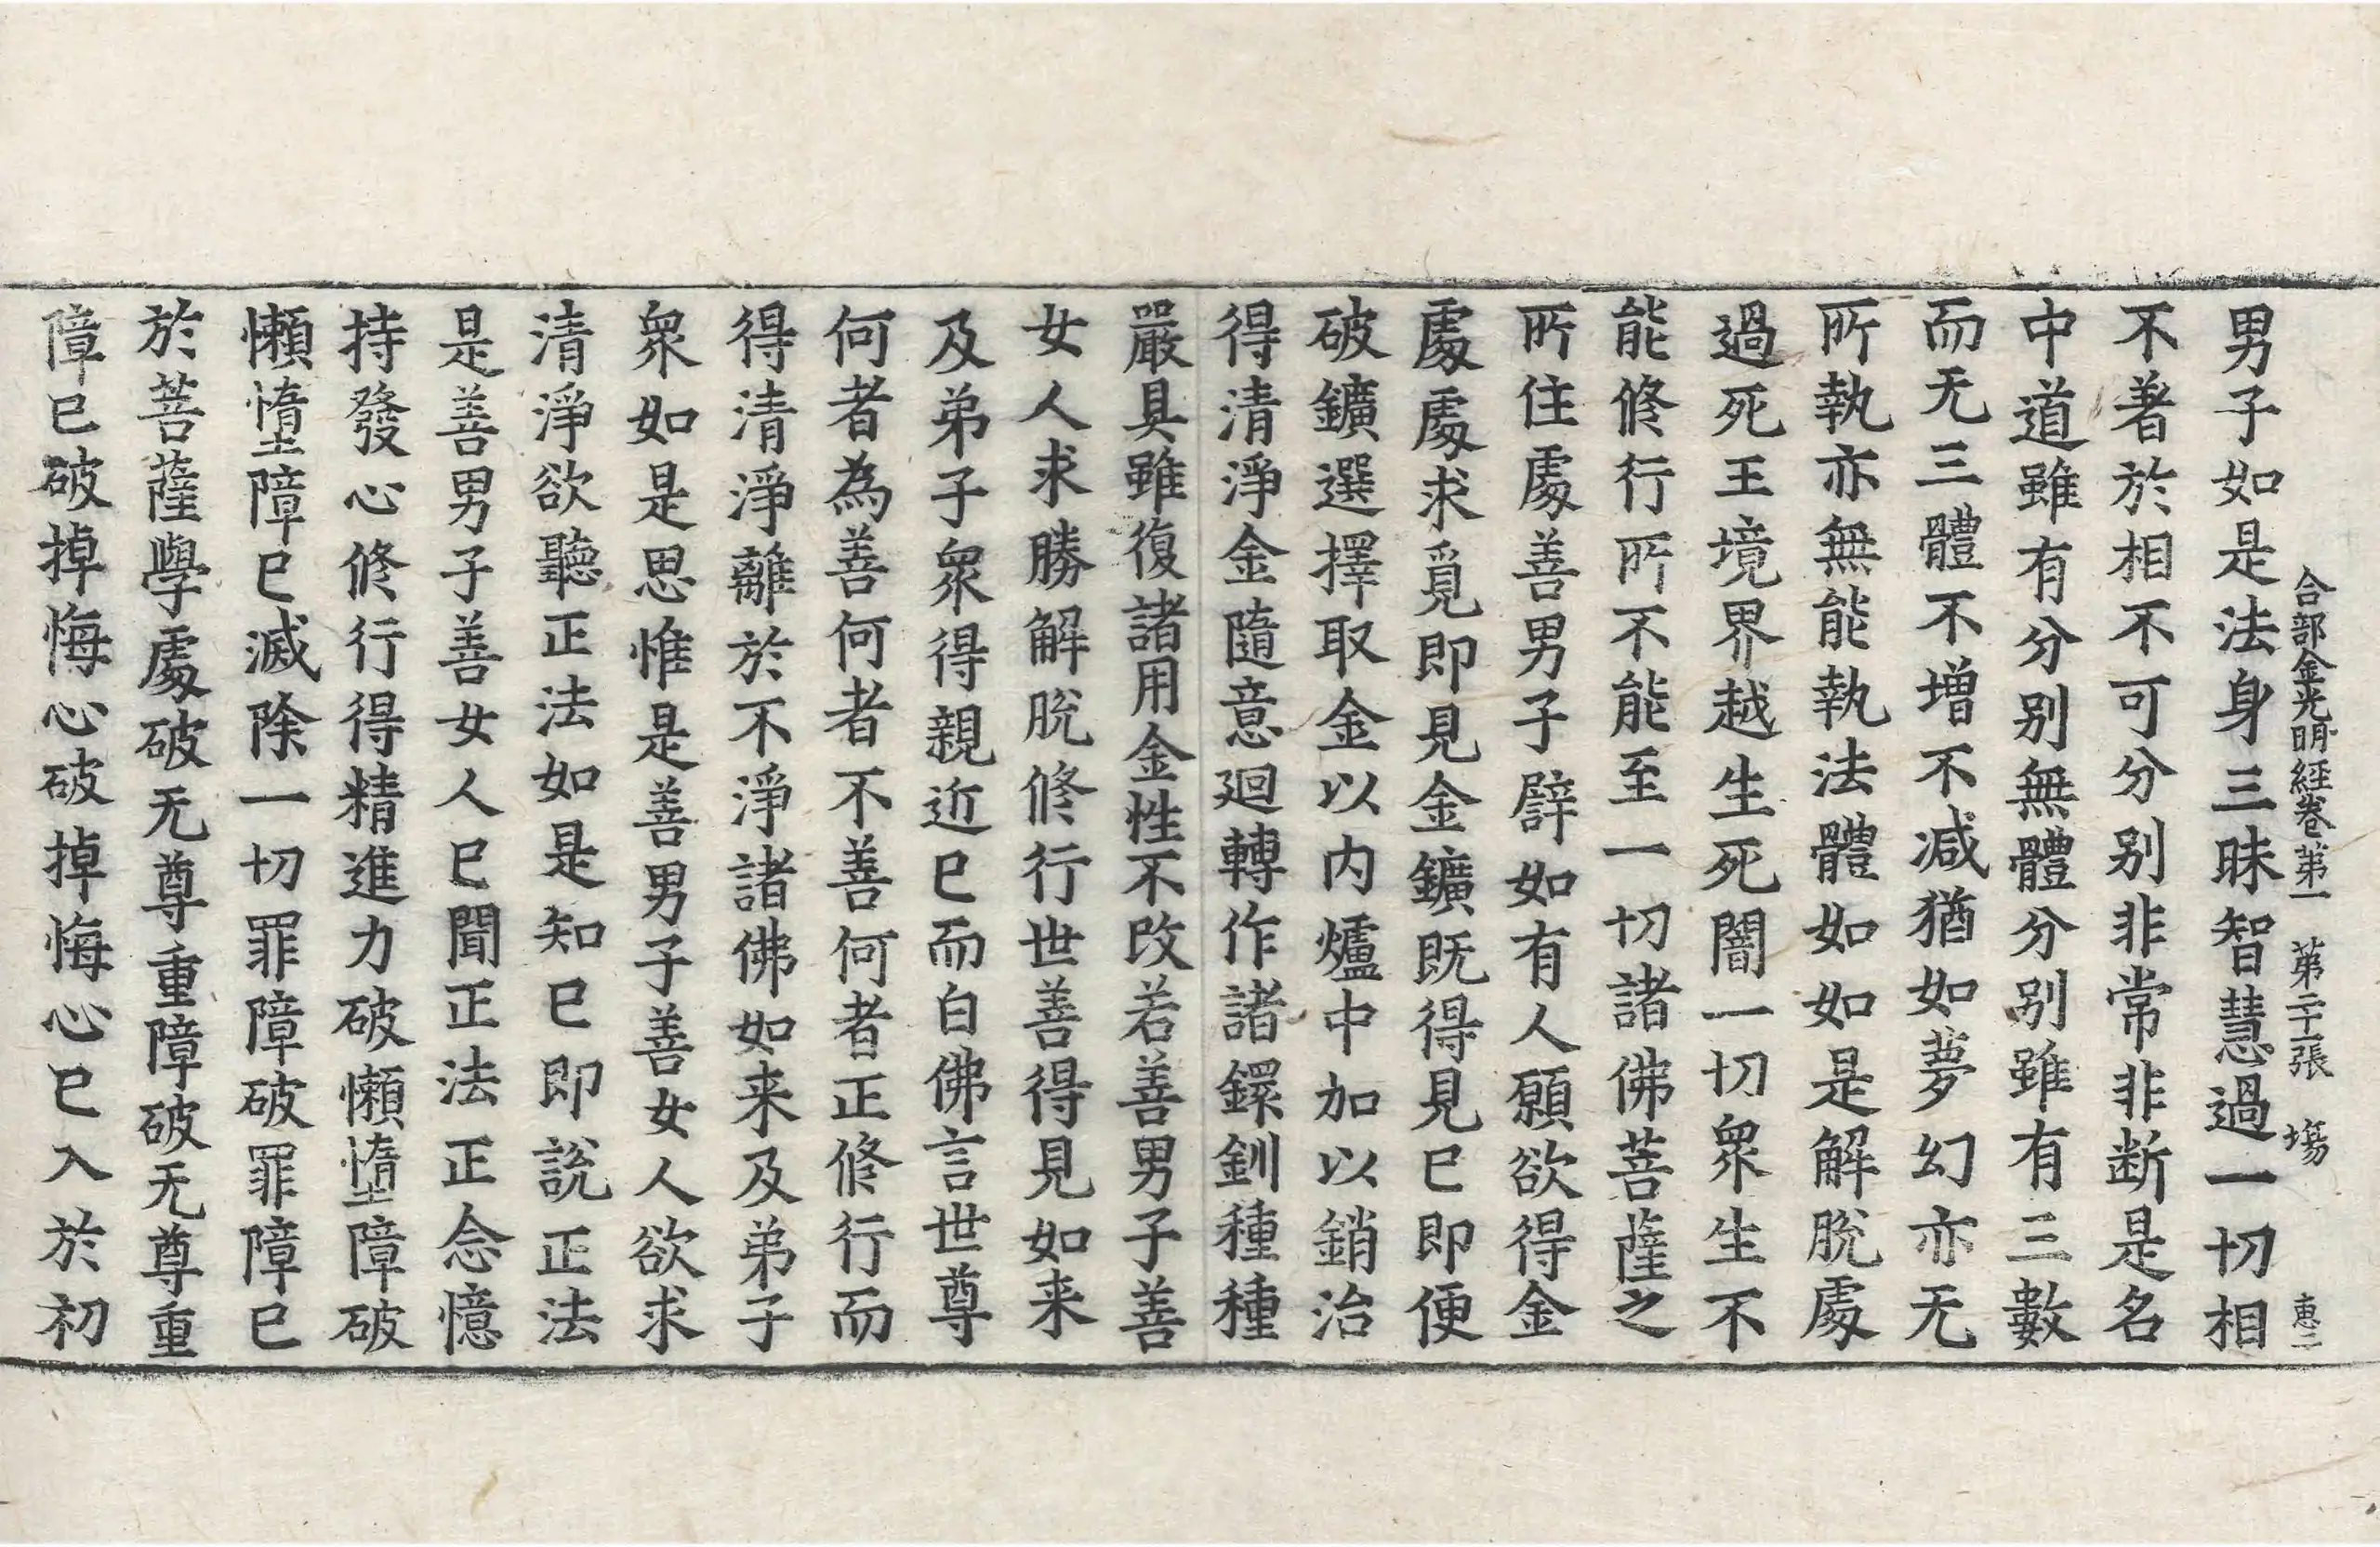 合部金光明經卷第一 第二十一張 塲 惠二
男子如是法身三昧智慧過一切相
不著於相不可分別非常非断是名
中道雖有分別無體分別雖有三數
而无三體不增不减猶如夢幻亦无
所執亦無能執法體如如是解脫處
過死王境界越生死闇一切衆生不
能修行所不能至一切諸佛菩薩之
所住處善男子譬如有人願欲得金
處處求覓即見金鑛既得見已即便
破鑛選擇取金以内爐中加以銷治
得清淨金隨意迴轉作諸鐶釧種種
嚴具雖復諸用金性不改若善男子善
女人求勝解脫修行世善得見如来
及弟子衆得親近已而白佛言世尊
何者為善何者不善何者正修行而
得清淨離於不淨諸佛如来及弟子
衆如是思惟是善男子善女人欲求
清淨欲聽正法如是知已即說正法
是善男子善女人已聞正法正念憶
持發心修行得精進力破懶墮障破
懶墮障已滅除一切罪障破罪障已
於菩薩學處破无尊重障破无尊重
障已破掉悔心破掉悔心已入於初